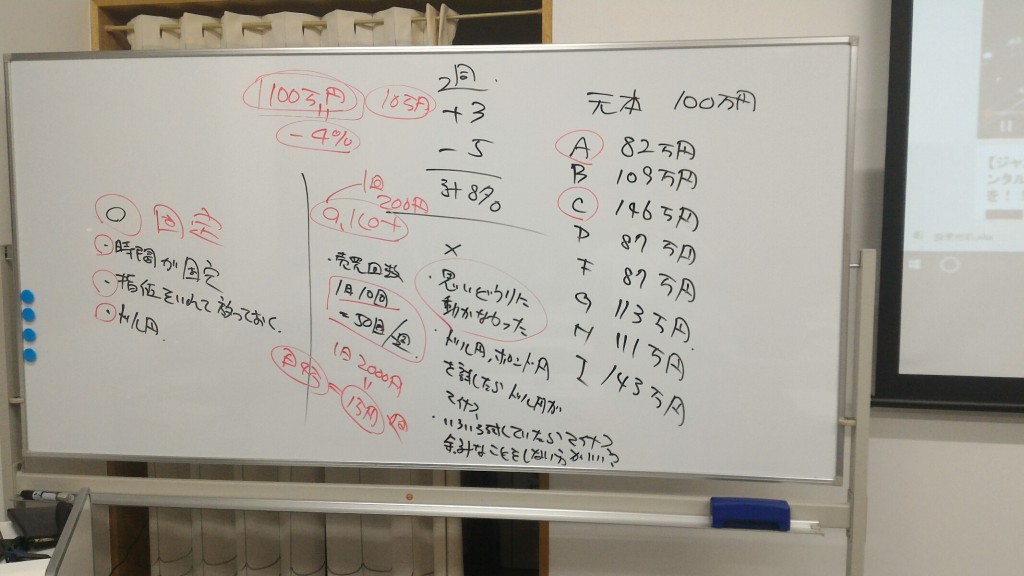 元本 100万円
A 82万円
B 109万円
C 146万円
D 87万円
F 87万円
G 113万円
H 111万円
I 143万円
100万円
10万円
-4%
2回
+3
-5
3+8%
1回
200円
○ 固定
・時間が固定
・指値をいれて放っておく.
・ドル円
・売買回数
1日10回
=50回/週
1日2000円
=
1万円
×
・思いどうりに
動かなかった
・ドル円、ポンド円
を試したらドル円が
マイナス
・いろいろ試していたらマイナス
余計なことをしない方がいい?
『ジャ
ンタル
を!